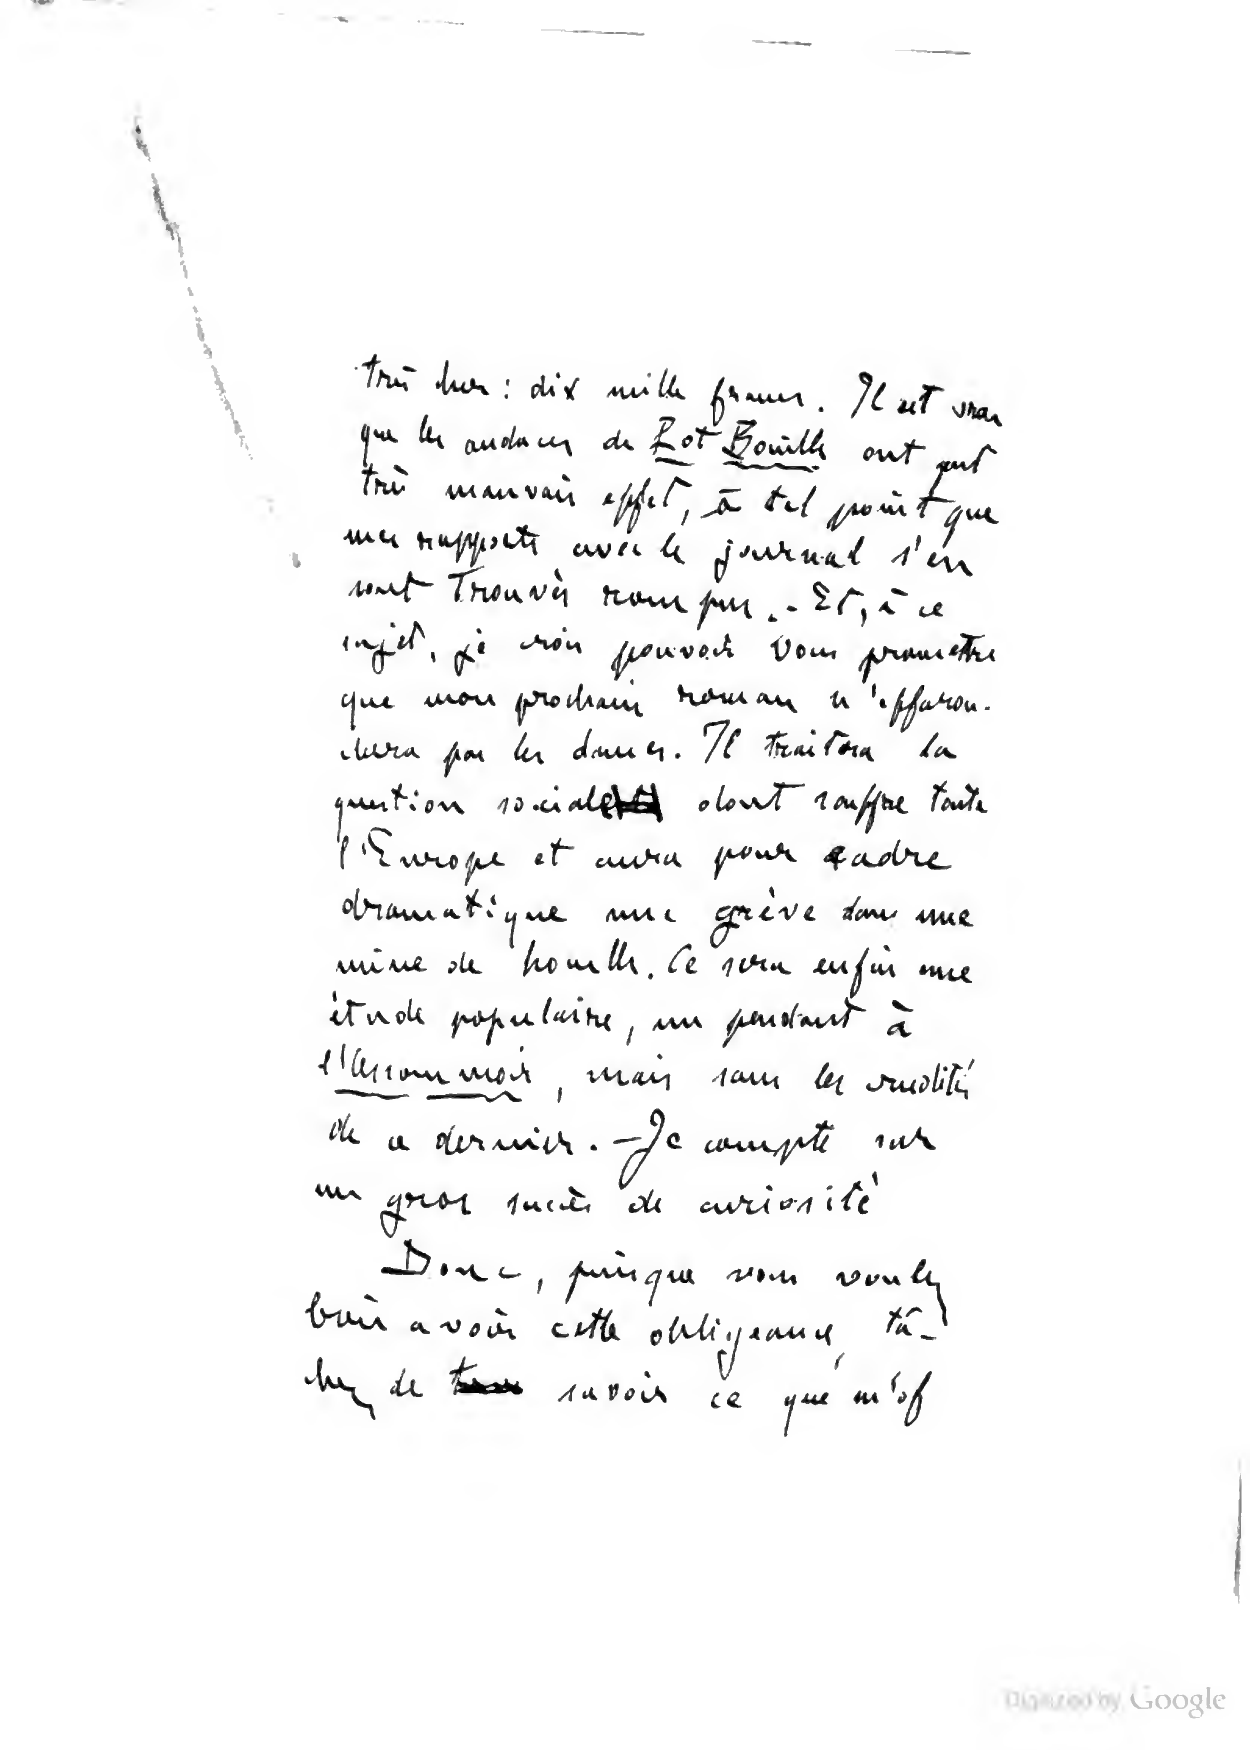 très cher : dix mille francs. Il est vrai
que les audaces de Pot Bouille ont fait
très mauvais effet, à tel point que
mes rapports avec le journal s'en
sont trouvés rompus. - Et, à ce
sujet, je crois pouvoir vous promettre
que mon prochain roman n'effarou-
chera pas les dames. Il traitera la
question sociale dont souffre toute
l'Europe et aura pour cadre
dramatique une grève dans une
mine de houille. Ce sera enfin une
étude populaire, un pendant à
l'Assommoir, mais sans les crudités
de ce dernier. - Je compte sur
un gros succès de curiosité
Donc, puisque vous voulez
bien avoir cette obligeance, tâ-
chez de savoir ce que m'of
Digitized by Google